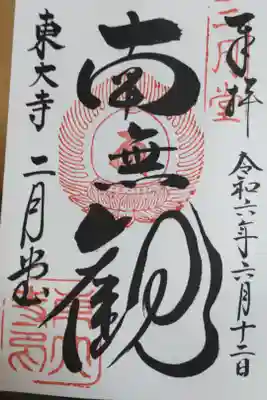 奉拝
二月堂
令和六年六月十二日
南無観
東大寺 二月堂